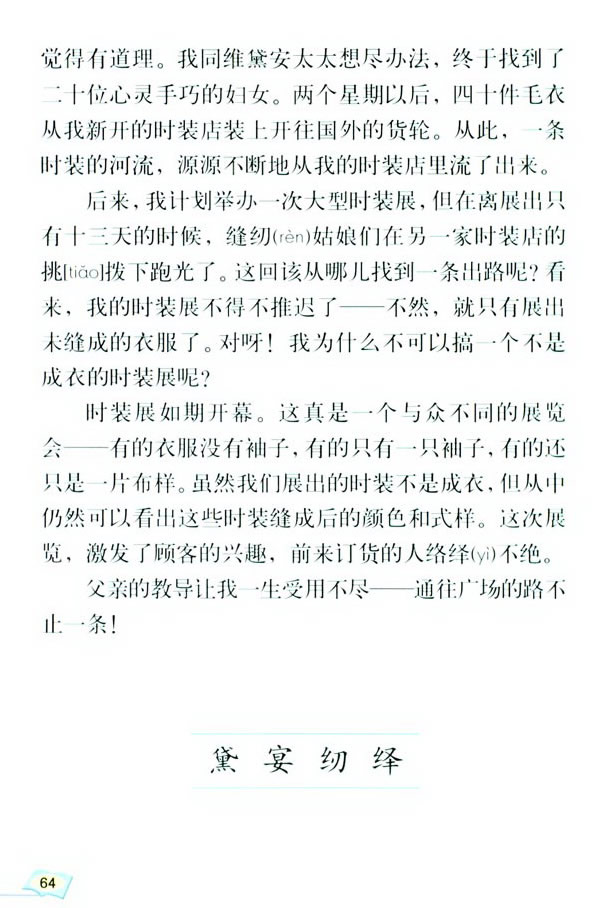 觉得有道理。我同维黛安太太想尽办法，终于找到了
二十位心灵手巧的妇女。两个星期以后，四十件毛衣
从我新开的时装店装上开往国外的货轮。从此，一条
时装的河流，源源不断地从我的时装店里流了出来。
后来，我计划举办一次大型时装展，但在离展出只
有十三天的时候，缝纫(rèn)姑娘们在另一家时装店的
挑[tiǎo]拨下跑光了。这回该从哪儿找到一条出路呢？看
来，我的时装展不得不推迟了——不然，就只有展出
未缝成的衣服了。对呀！我为什么不可以搞一个不是
成衣的时装展呢？
时装展如期开幕。这真是一个与众不同的展览
会——有的衣服没有袖子，有的只有一只袖子，有的还
只是一片布样。虽然我们展出的时装不是成衣，但从中
仍然可以看出这些时装缝成后的颜色和式样。这次展
览，激发了顾客的兴趣，前来订货的人络绎(yì)不绝。
父亲的教导让我一生受用不尽——通往广场的路不
止一条！
黛 宴 纫 绎
64